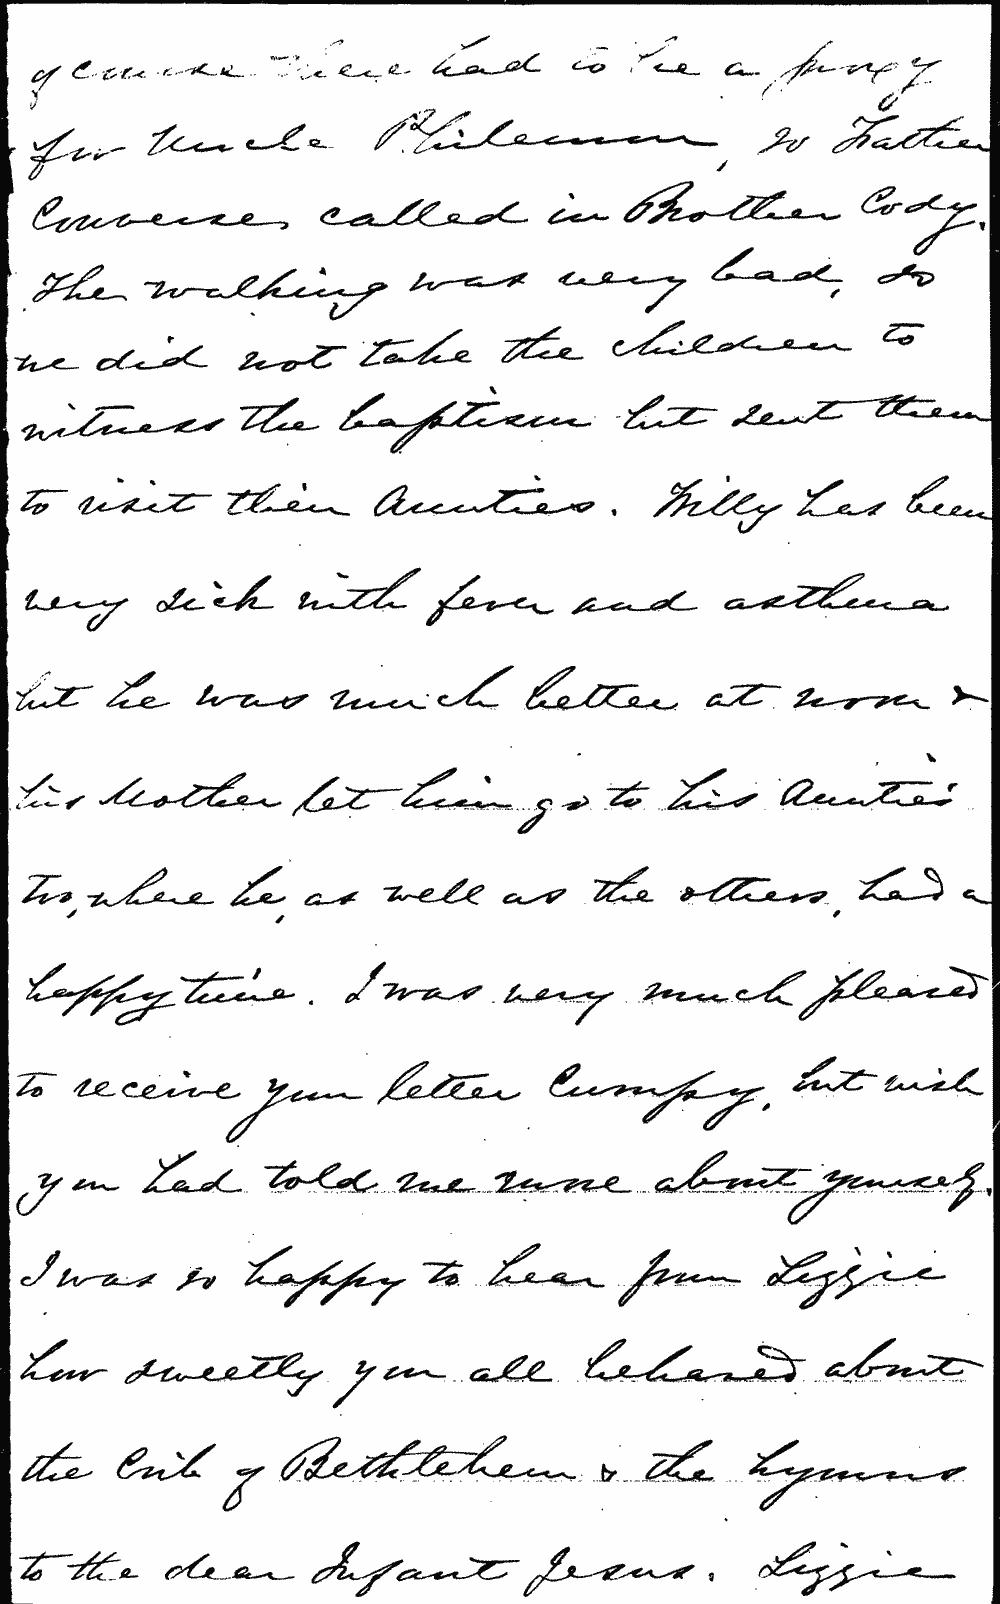 of course there had to be a proxy
for Uncle Philemon, so Father
Converse, called in Brother Cody.
The walking was very bad, so
we did not take the children to
witness the baptism but sent them
to visit their Aunties. Willy has been
very sick with fever and asthma
but he was much better at noon &
his Mother let him go to his Aunties
too, where he, as well as the others, had a
happy time. I was very much pleased
to receive your letter Cumpy, but wish
you had told me more about yourself.
I was so happy to hear from Lizzie
how sweetly you all behaved about
the Crib of Bethlehem & the hymns
to the dear Infant Jesus. Lizzie